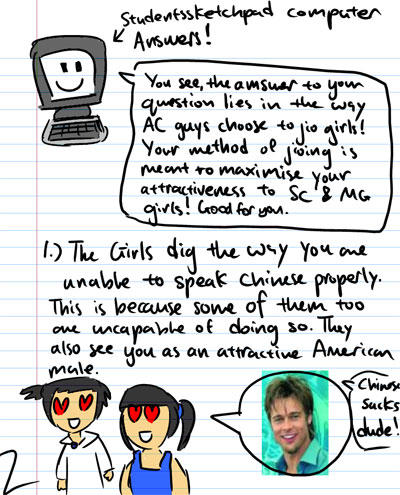 Studentssketchpad computer
Answers!
You see, the amsuer to your
question lies in the way
AC guys choose to jio girls!
Your method of jioing is
meant to maximise your
attractiveness to SC & MG
girls! Good for you.
1.) The Girls dig the way you are
unable to speak Chinese properly.
This is because some of them too
are uncapable of doing so. They
also see you as an attractive American
male.
Chinese
sucks
dude!
2